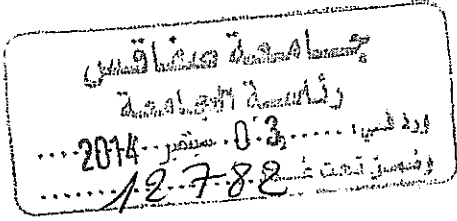 جامعة صفاقس
رئاسة الجامعة
ورد في: ..... 0.3. سبتمبر 2014 ....
وضمن تحت عـ 12782 .....